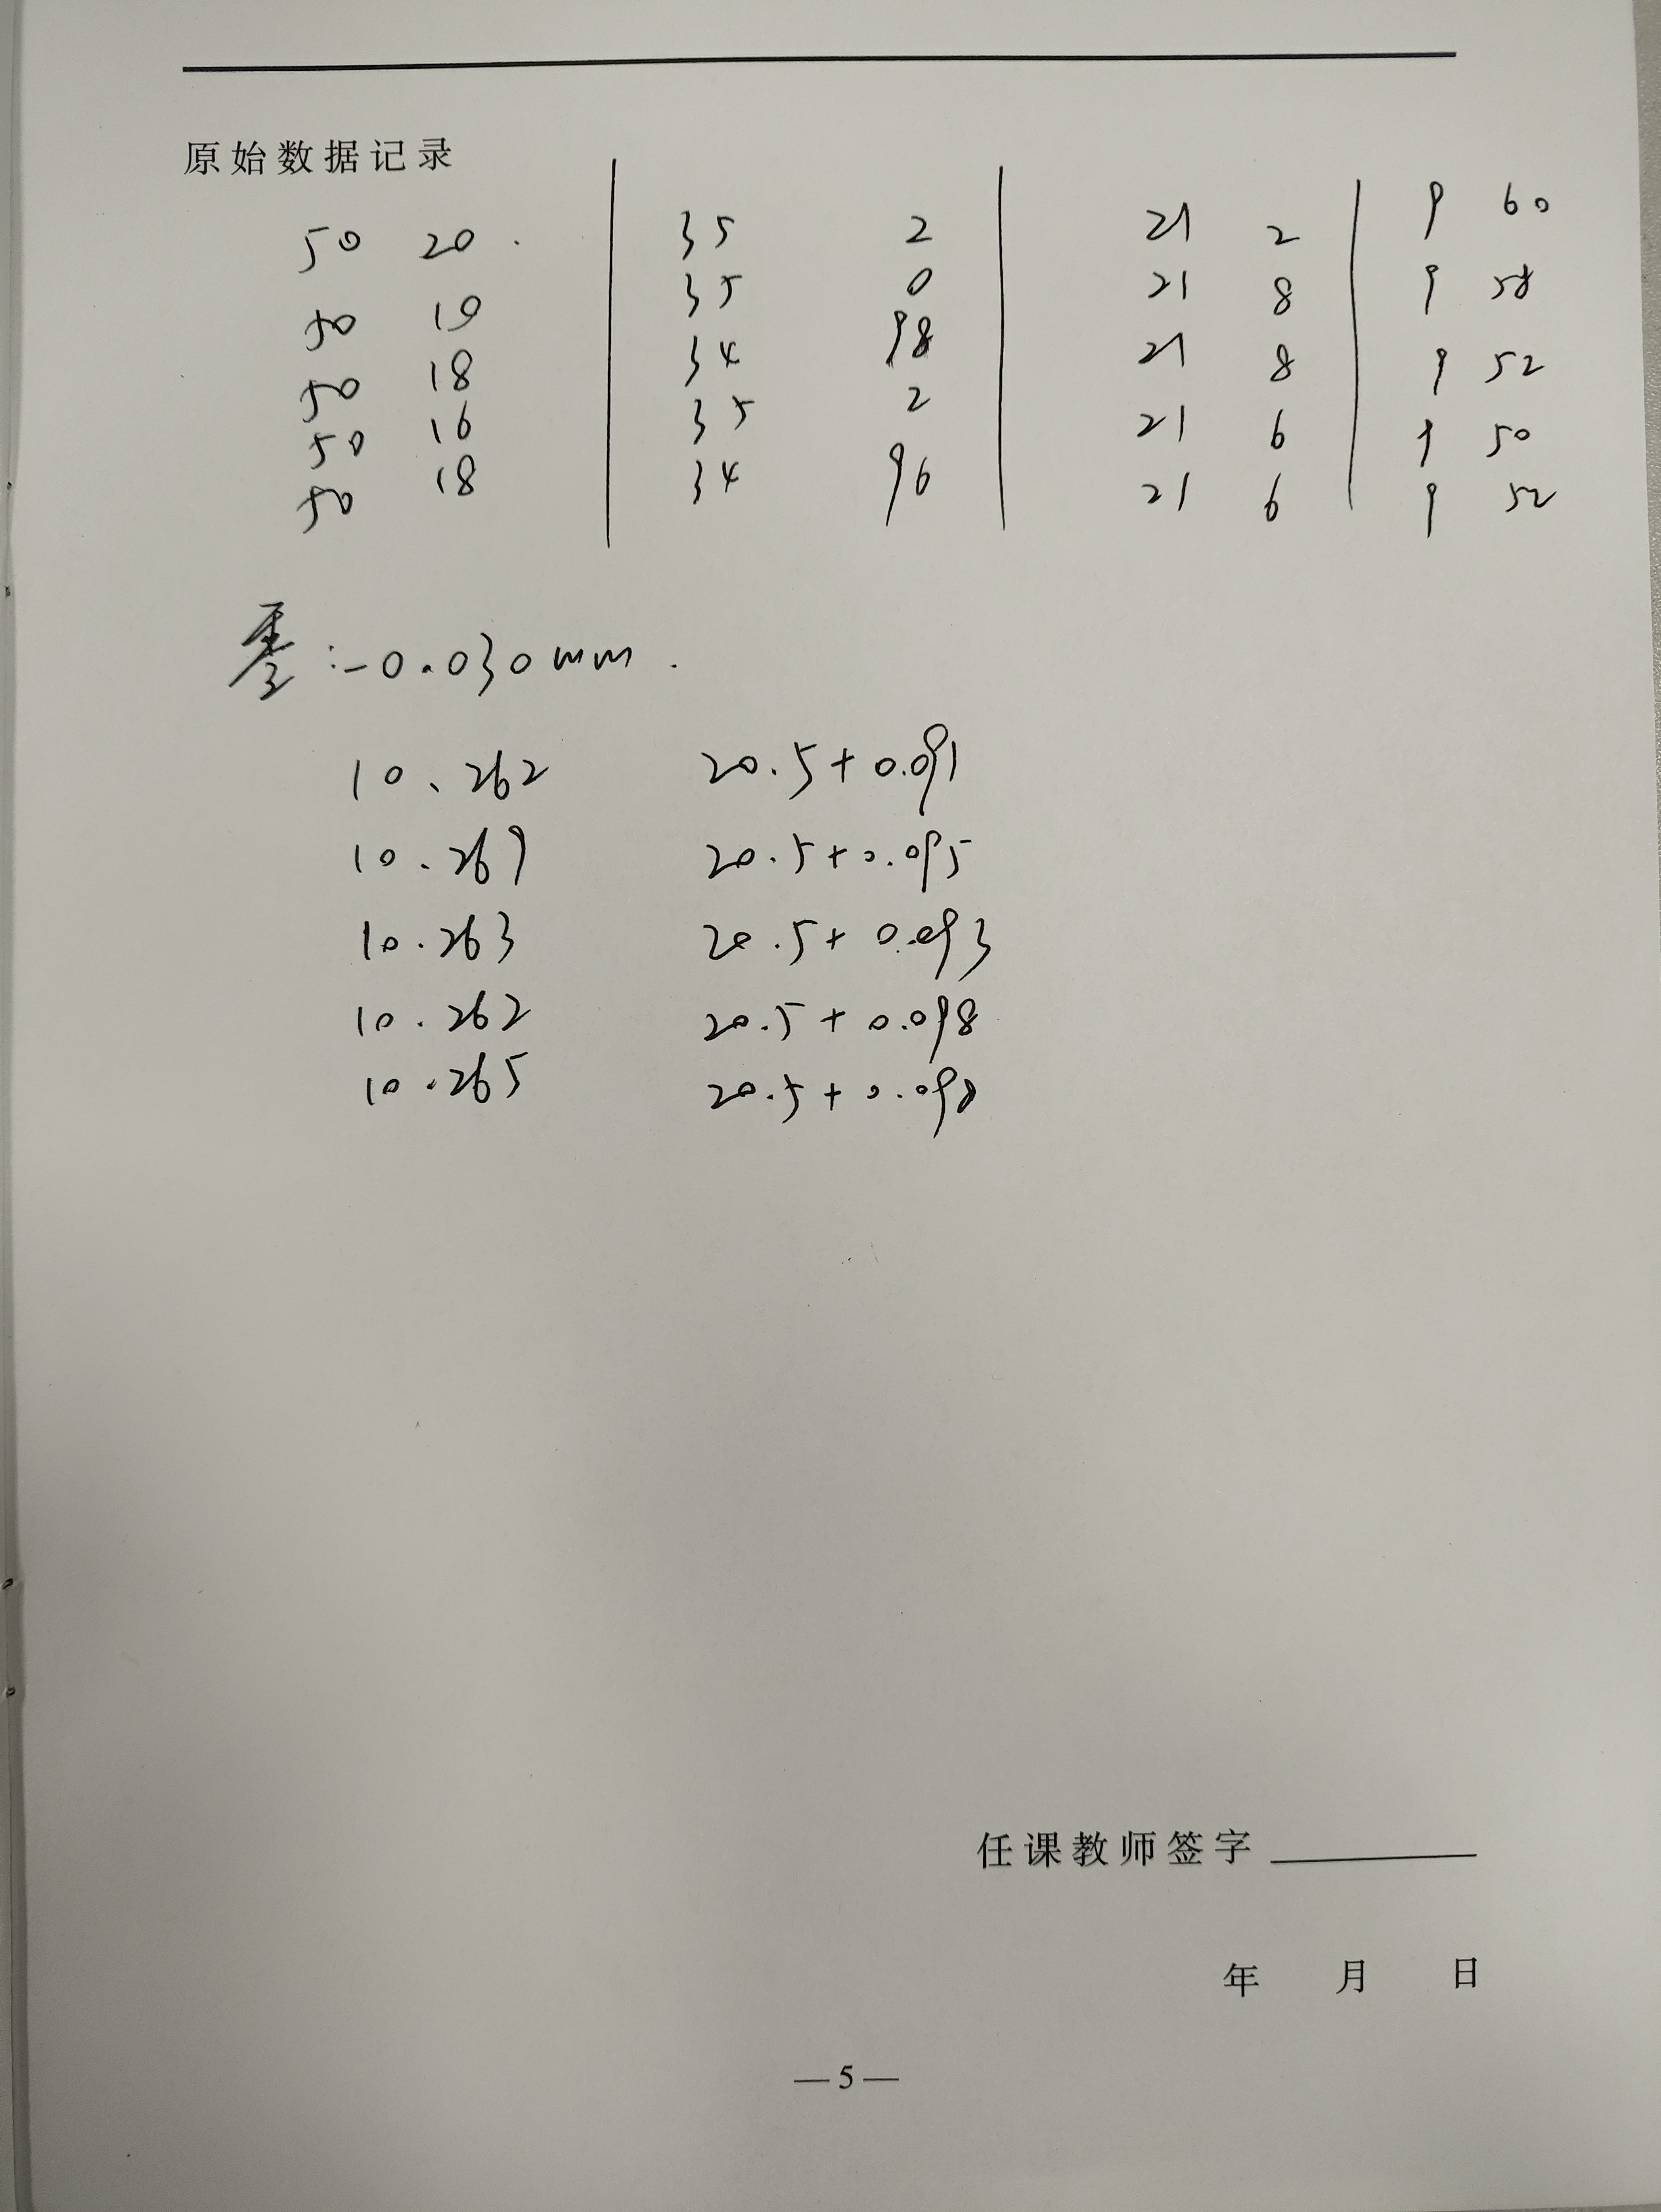 原始数据记录
50 20 . 35 2 21 2 9 60
50 19 35 0 21 8 9 58
50 18 34 98 21 8 9 52
50 16 35 2 21 6 9 50
50 18 34 96 21 6 9 52
零:-0.030mm.
10.262 20.5+0.091
10.269 20.5+0.095
10.263 20.5+0.093
10.262 20.5+0.098
10.265 20.5+0.098
任课教师签字
年 月 日
—5—